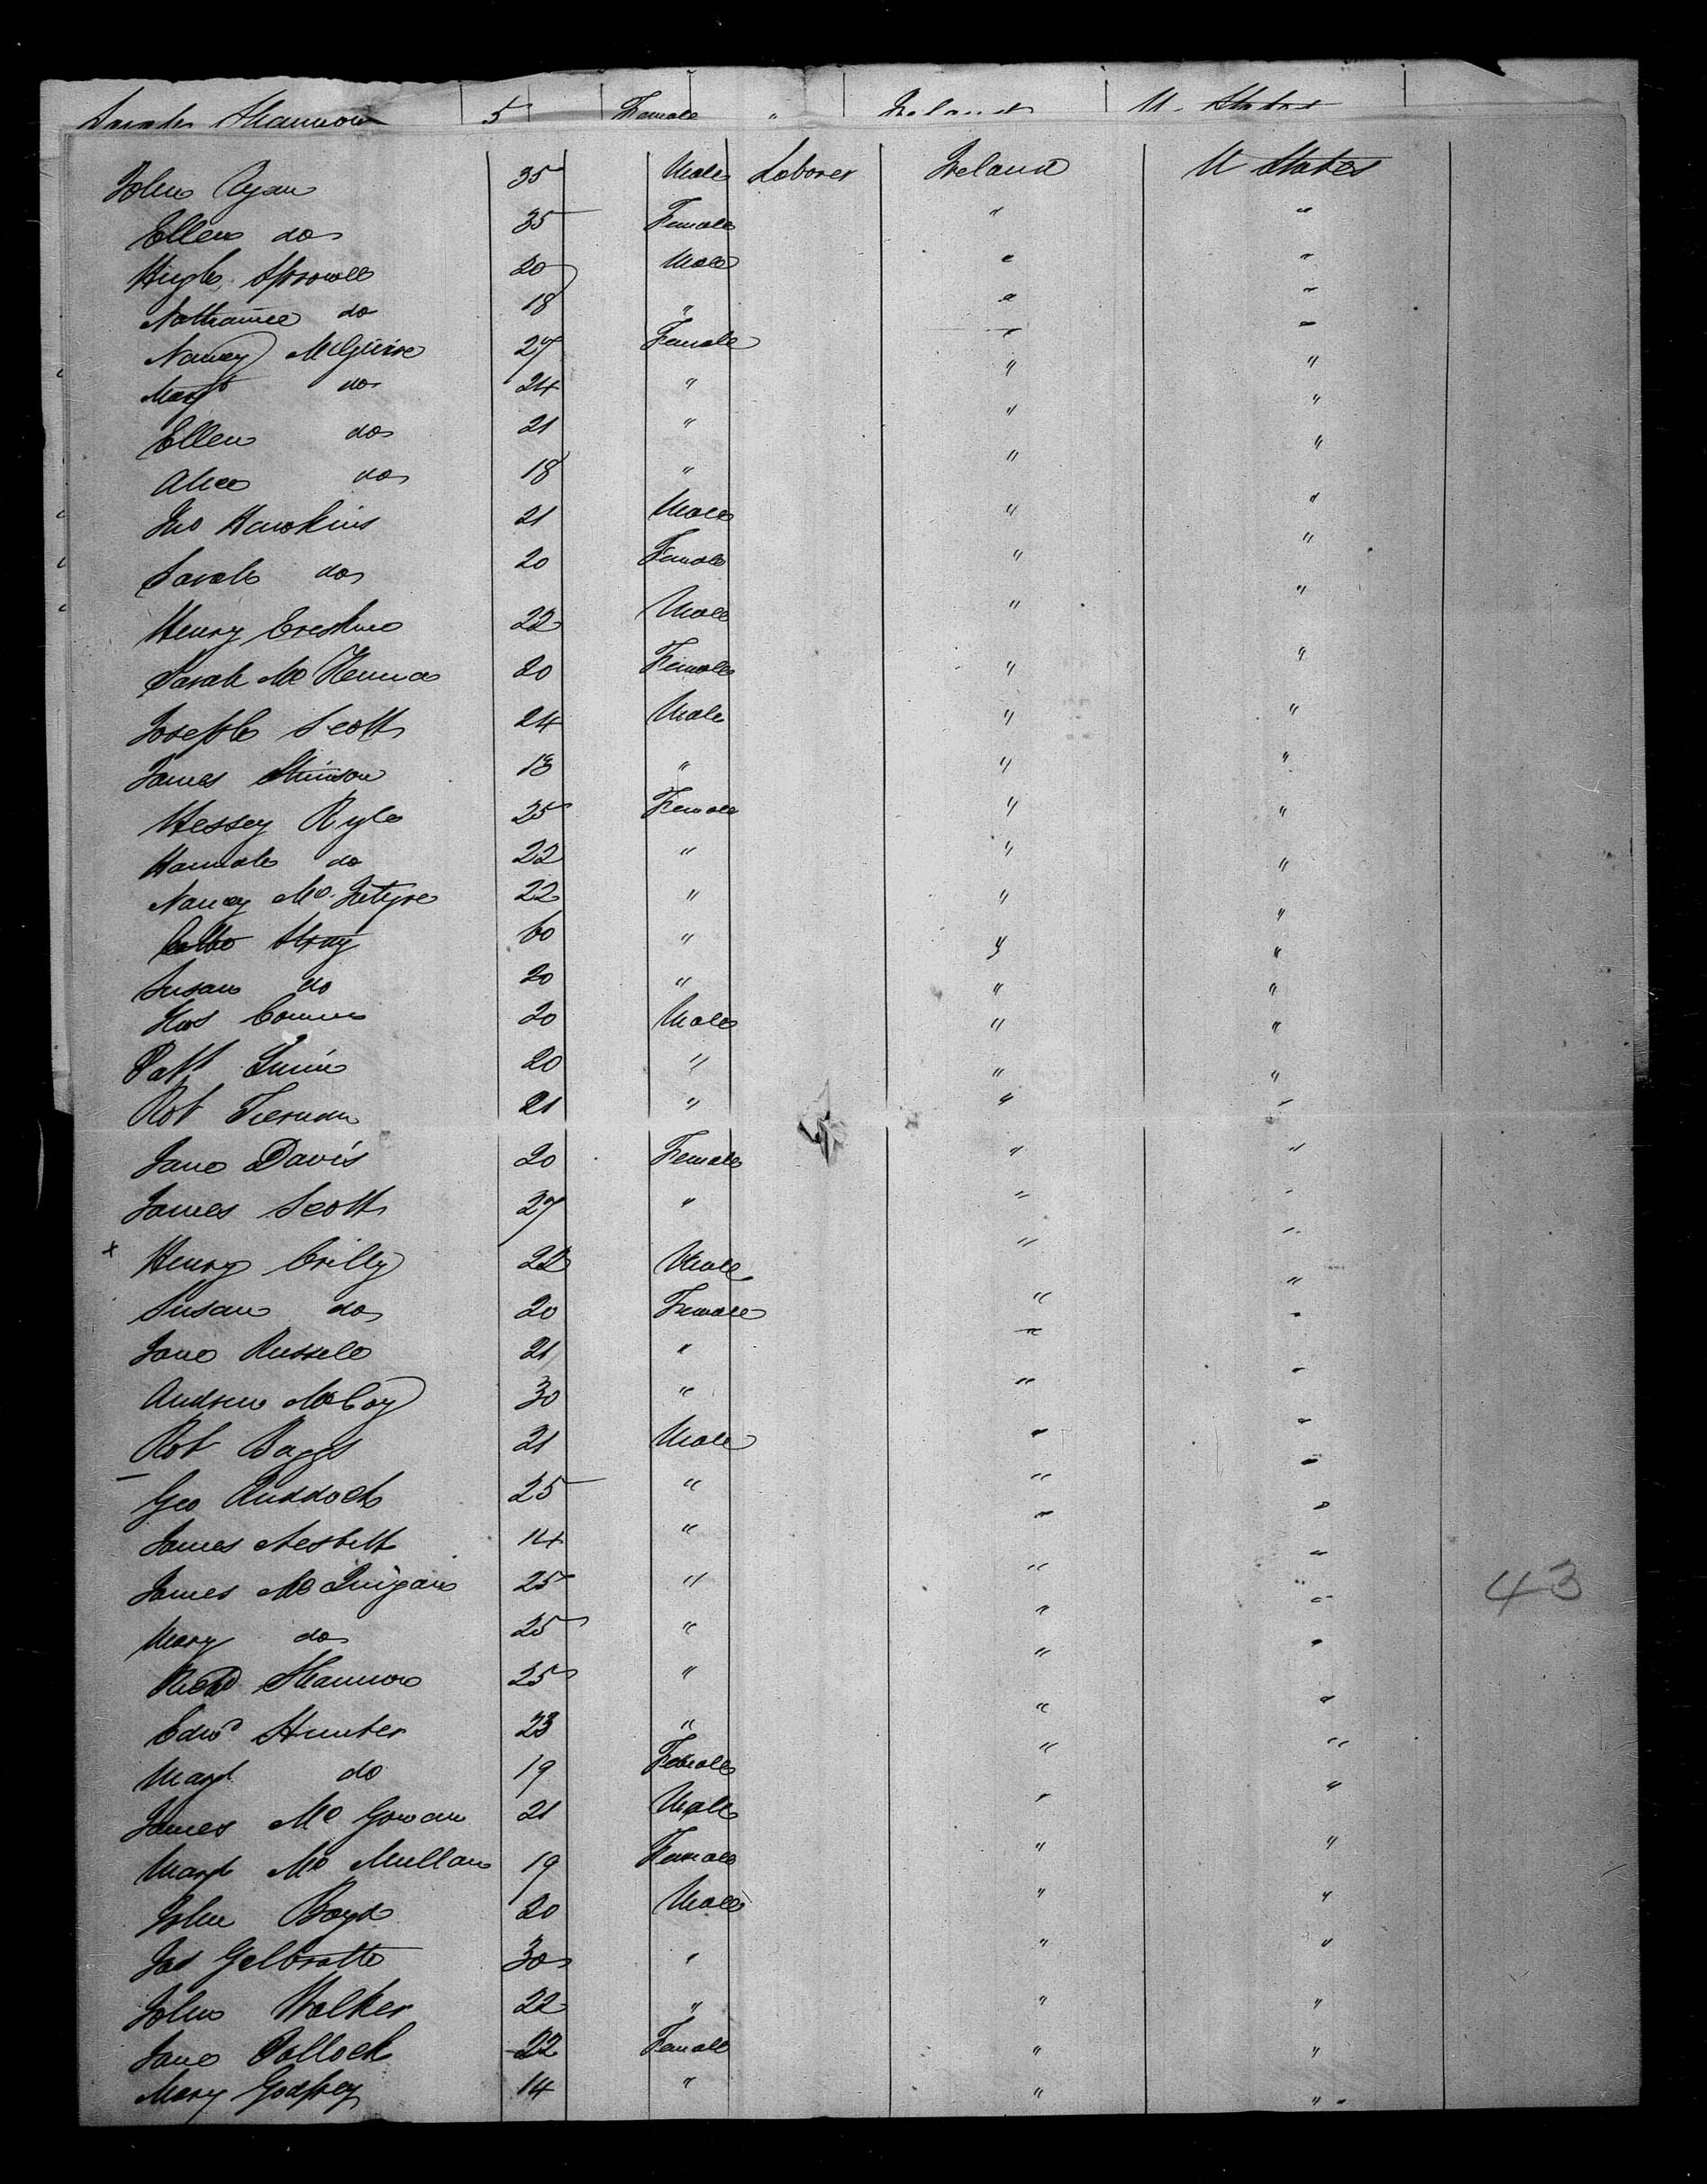 Sarah Shannon 5 Female " Ireland U. States
John Ryan 35 Male Laborer Ireland U States
Ellen do 35 Female " "
Hugh Sprowell 20 Male " "
Nathaniel do 18 " " "
Nancy McGuire 27 Female " "
Margt do 24 " " "
Ellen do 21 " " "
Alice do 18 " " "
Jno Hawkins 21 Male " "
Sarah do 20 Female " "
Henry Ereskine 22 Male " "
Sarah McKenna 20 Female " "
Joseph Scott 24 Male " "
James Stinson 13 " " "
Hessey Kyle 25 Female " "
Hannah do 22 " " "
Nancy McIntyre 22 " " "
60 " " "
Susan do 20 " " "
20 Male " "
Patt Quin 20 " " "
Rob Tiernan 21 " " "
Jane Davis 20 Female " "
James Scott 27 " " "
x Henry Crilly 22 Male " "
Susan do 20 Female " "
Jane Russell 21 " " "
Andrew McCoy 30 " " "
Rob Boggs 21 Male " "
Geo Ruddock 25 " " "
James Nesbitt 14 " " "
James McQuigan 25 " " "
Mary do 25 " " "
Richd Shannon 25 " " "
Edwd Hunter 23 " " "
Margt do 19 Female " "
James McGowan 21 Male " "
Margt McMullan 19 Female " "
John Boyd 20 Male " "
Jas Gelbrath 30 " " "
John Walker 22 " " "
Jane Pollock 22 Female " "
Mary Godfrey 14 " " "
43